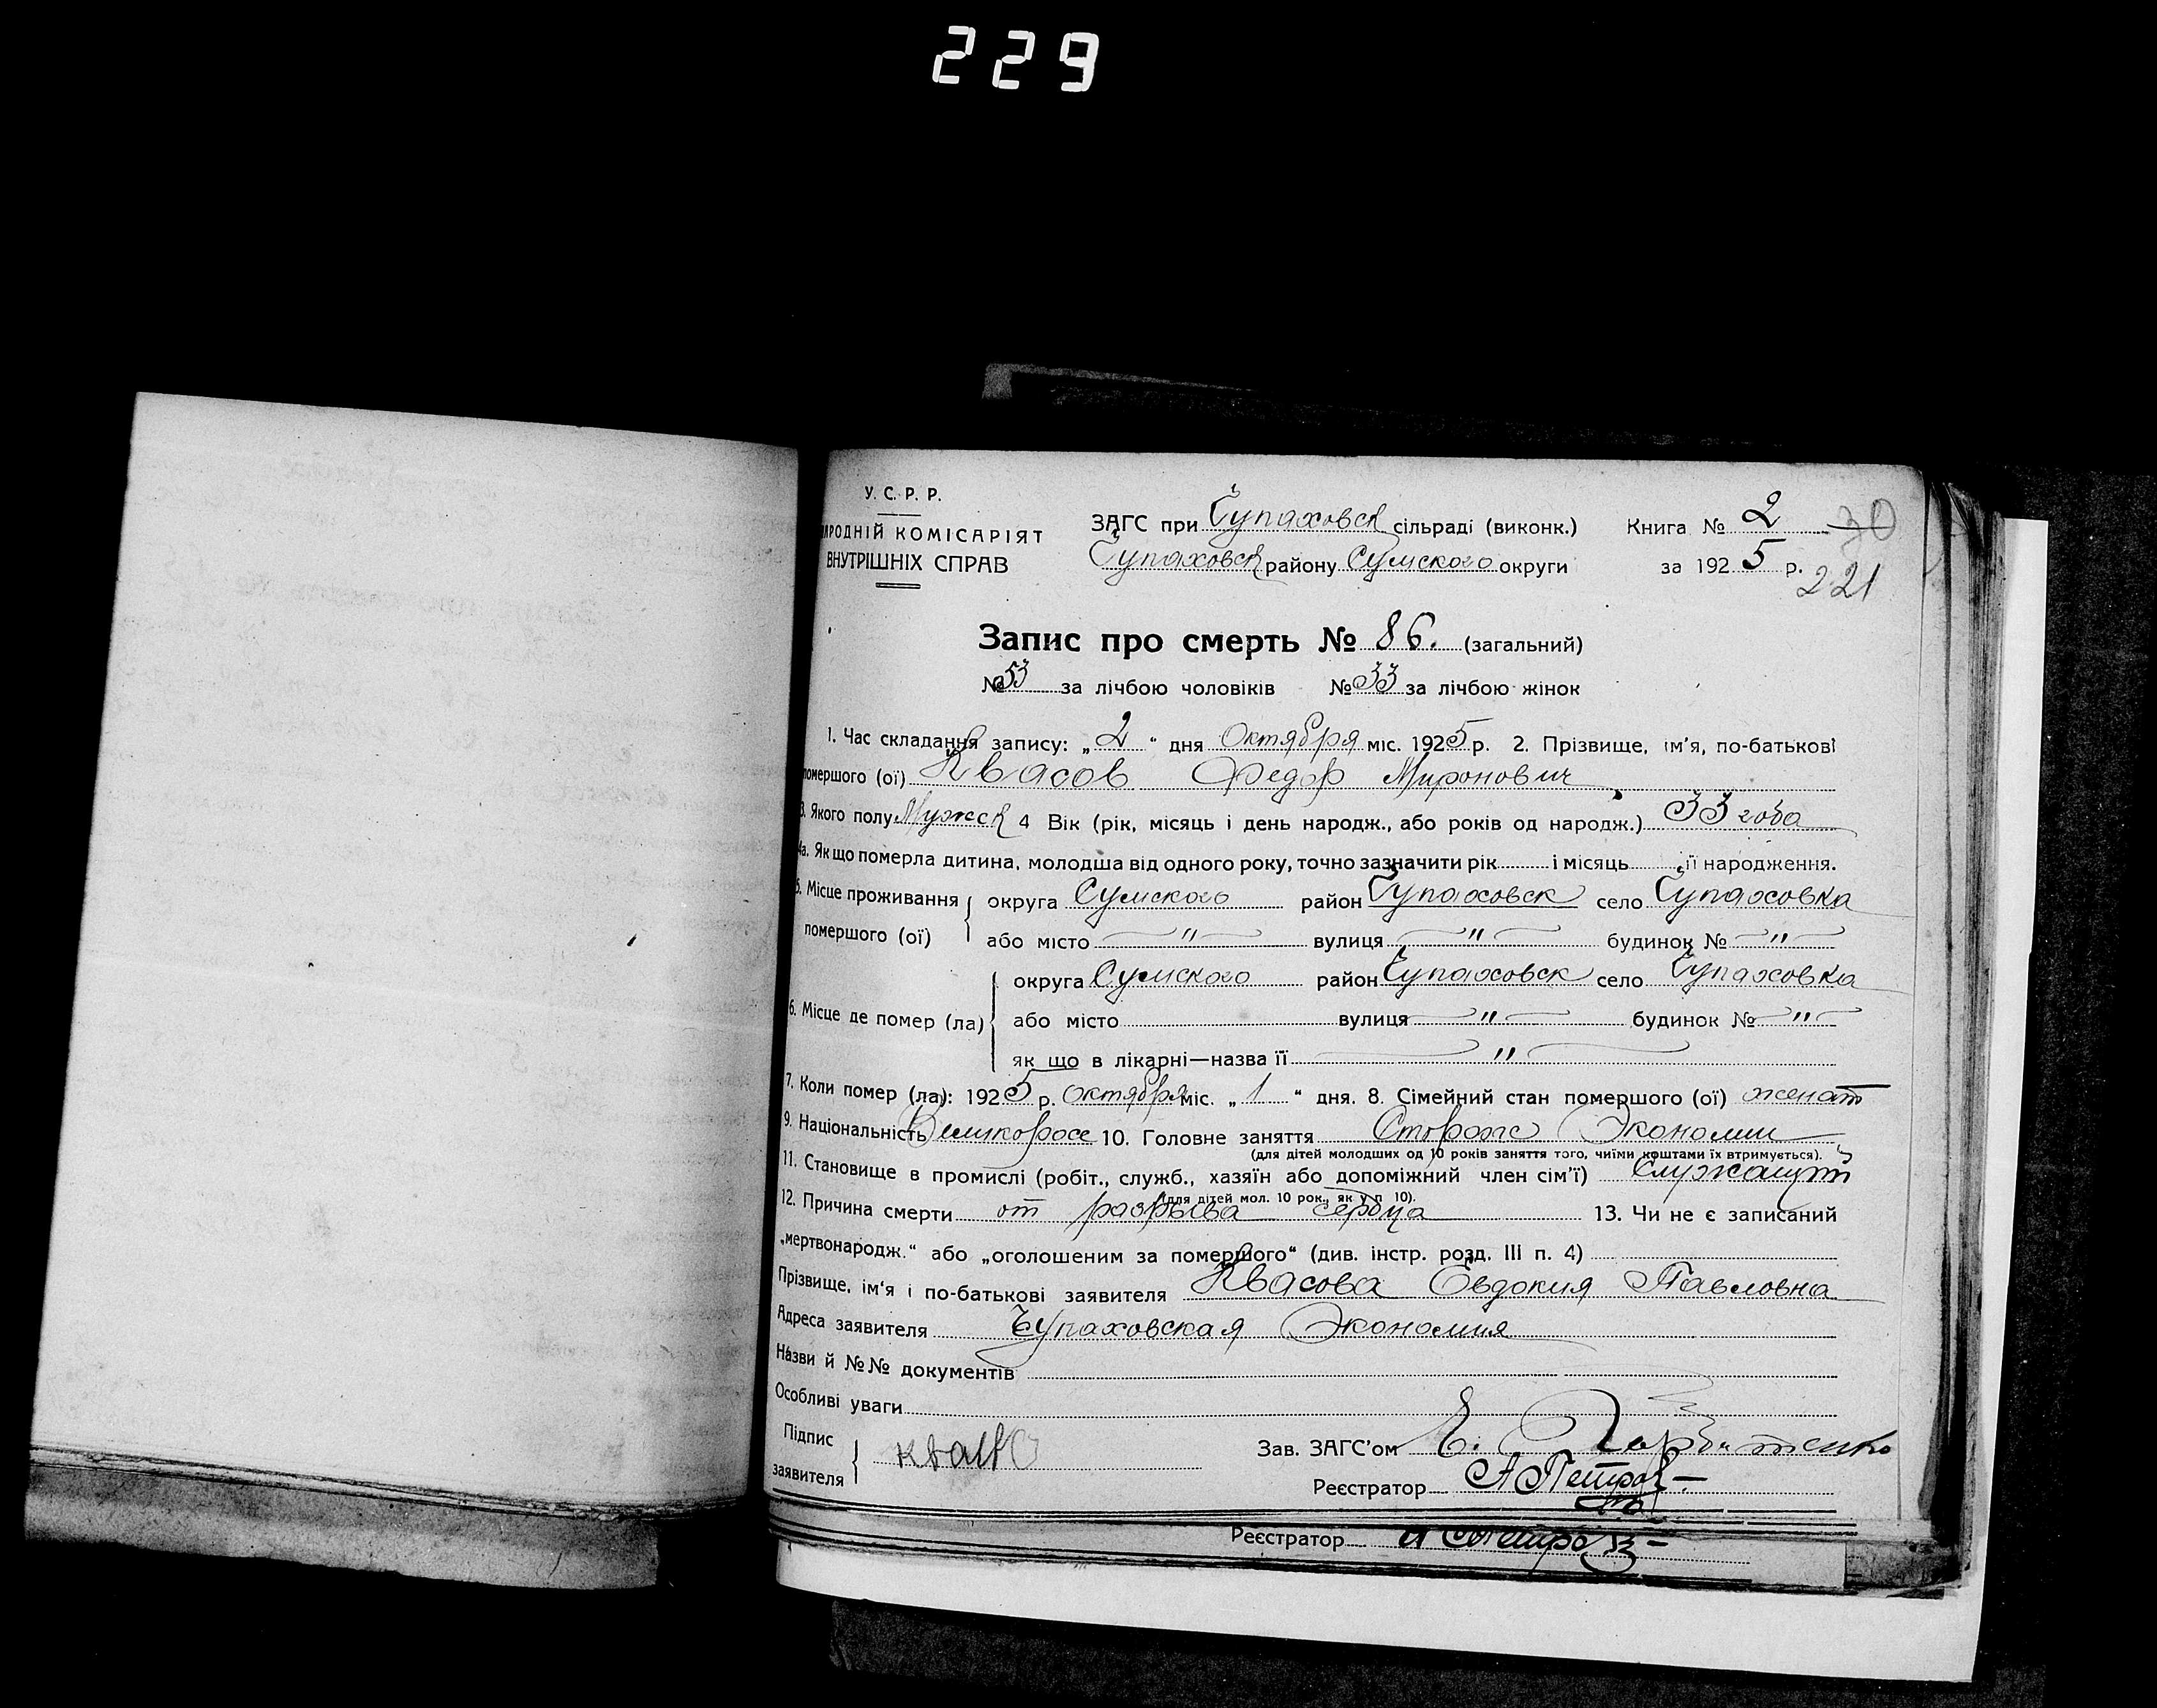 229
У. С. Р. Р.
НАРОДНІЙ КОМІСАРІЯТ
ВНУТРІШНІХ СПРАВ
ЗАГС при Чупаховск сільраді (виконк.)
Чупаховск району Сумского округи
Книга № 2
30
за 1925 р.
221
Запис про смерть № 86. (загальний)
№ 53 за лічбою чоловіків № 33 за лічбою жінок
1. Час складання запису: „2“ дня Октября міс. 1925 р. 2. Прізвище, ім'я, по-батькові
помершого (ої) Квасов Федор Миронович
3. Якого полу Мужск 4 Вік (рік, місяць і день народж., або років од народж.) 33 года
4а. Як що померла дитина, молодша від одного року, точно зазначити рік і місяць її народження.
5. Місце проживання округа Сумского район Чупаховск село Чупаховка
помершого (ої) або місто —"— вулиця —"— будинок № —"—
округа Сумского район Чупаховск село Чупаховка
6. Місце де помер (ла) або місто вулиця —"— будинок № —"—
як що в лікарні—назва її —"—
7. Коли помер (ла): 1925 р. октября міс. „1“ дня. 8. Сімейний стан помершого (ої) женат
9. Національність Великоросс 10. Головне заняття Сторож Экономии
(для дітей молодших од 10 років заняття того, чиїми коштами їх втримується).
11. Становище в промислі (робіт., служб., хазяїн або допоміжний член сім'ї) служащий
(для дітей мол. 10 рок., як у п 10).
12. Причина смерти от разрыва сердца 13. Чи не є записаний
„мертвонародж.“ або „оголошеним за помершого“ (див. інстр. розд. III п. 4)
Прізвище, ім'я і по-батькові заявителя Квасова Евдокия Павловна
Адреса заявителя Чупаховская Экономия
Назви й №№ документів
Особливі уваги
Підпис
заявителя
Зав. ЗАГС'ом
Реєстратор А Петров
Реєстратор А Петров